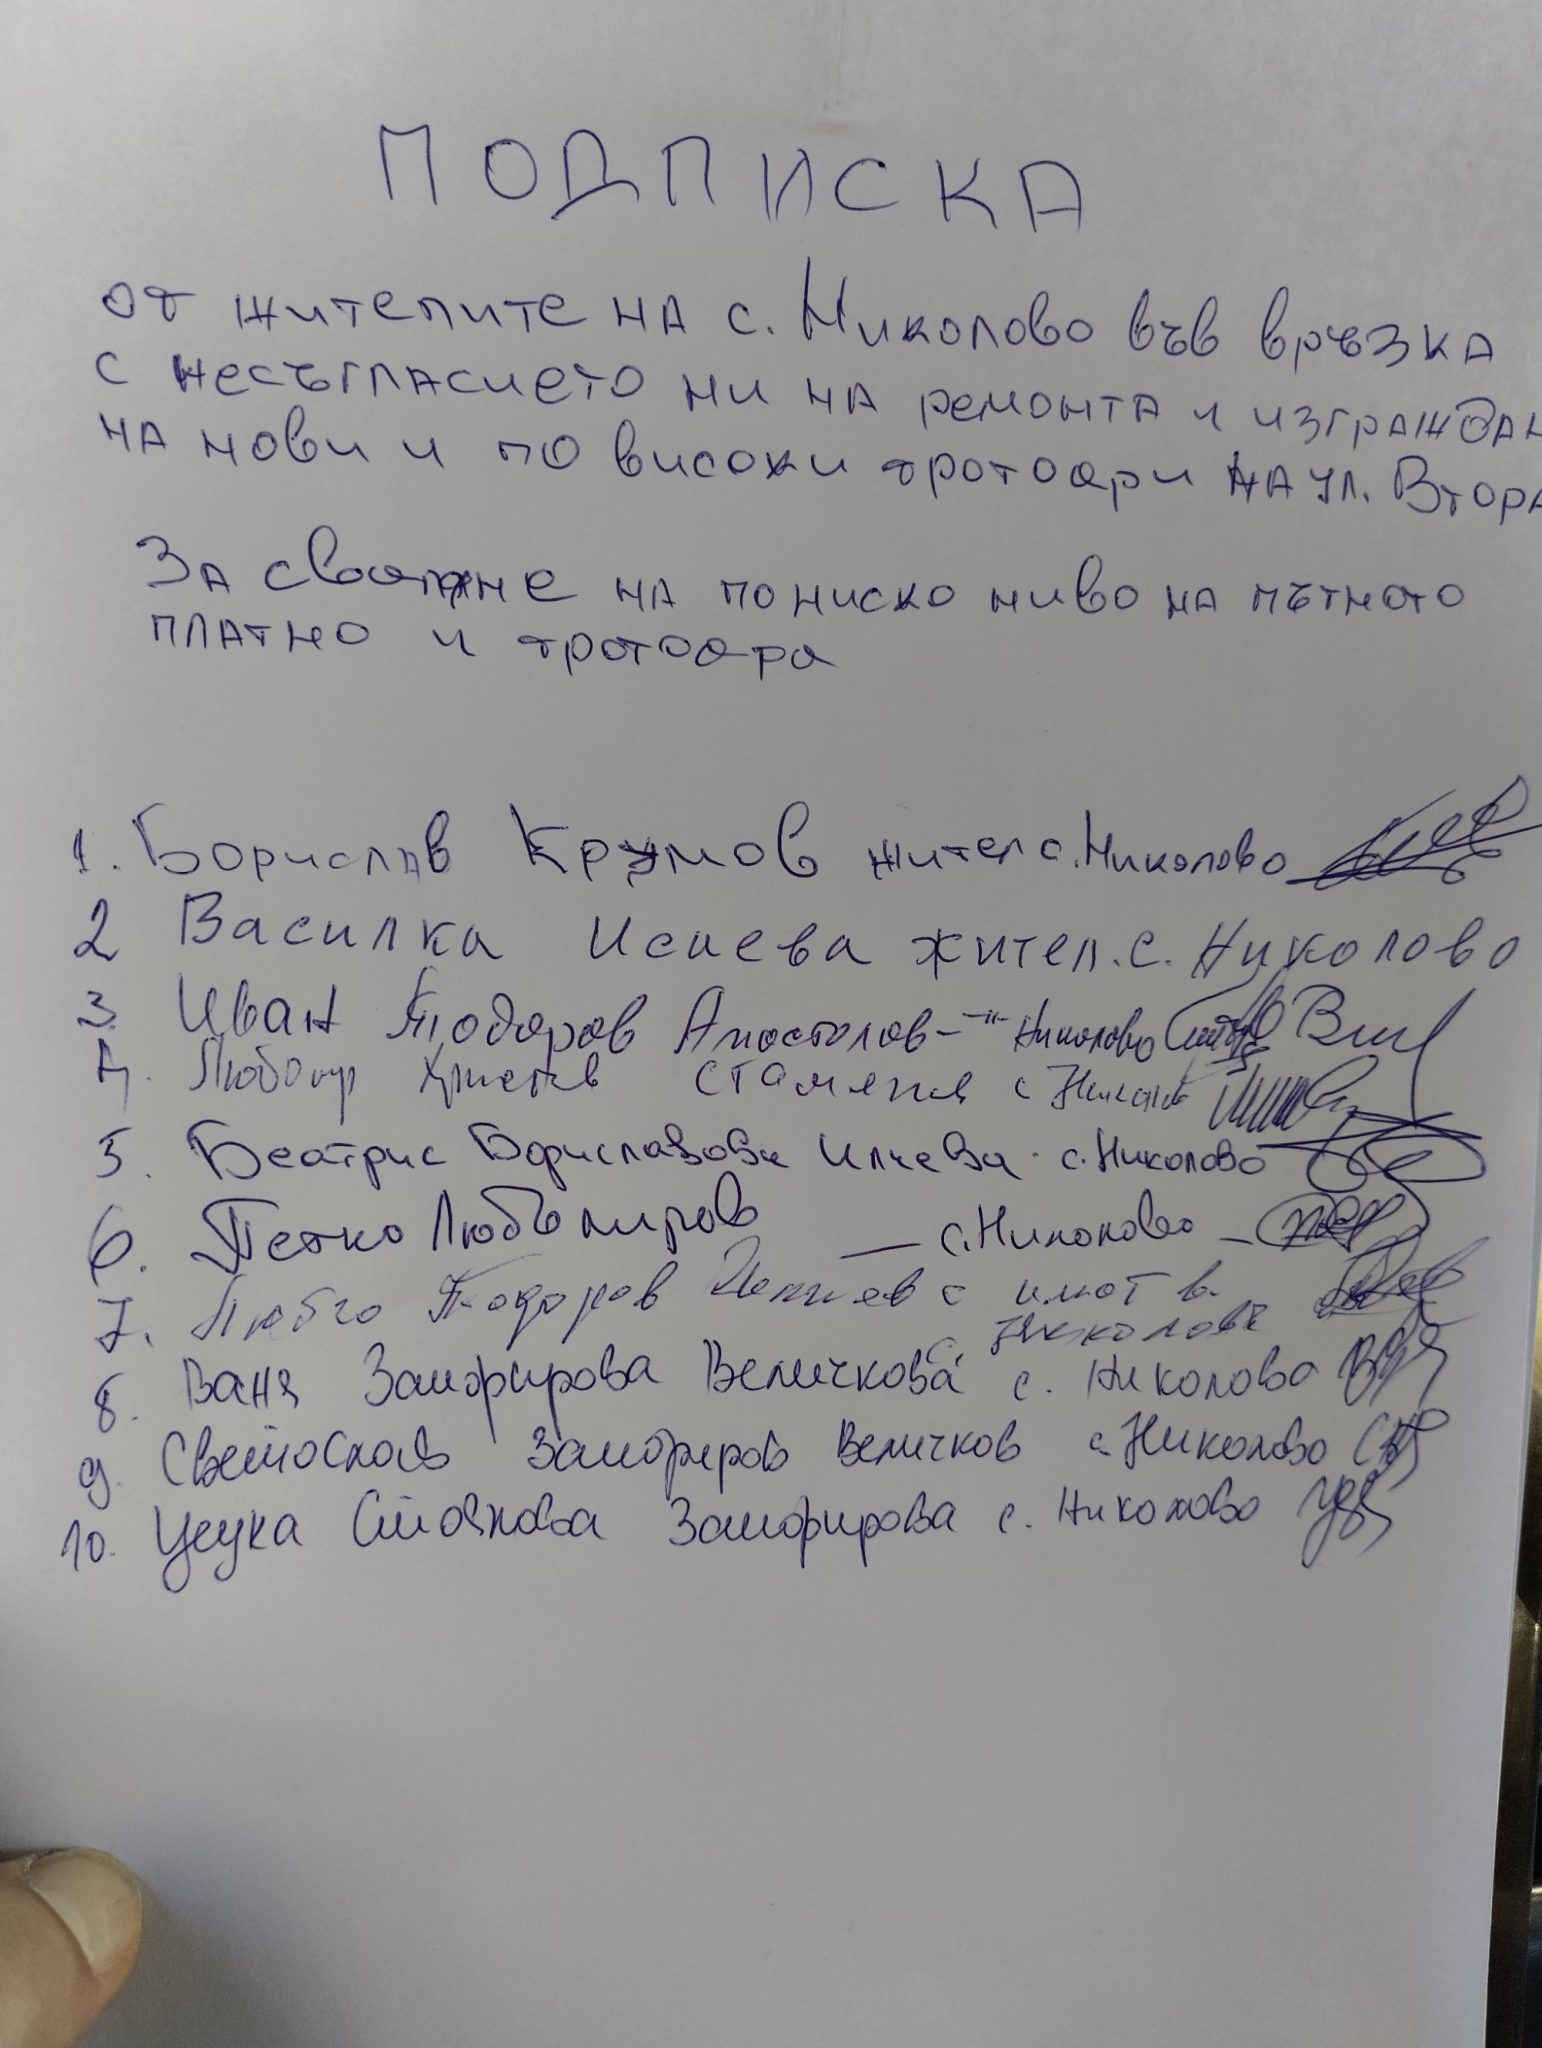 ПОДПИСКА
от жителите на с. Николово във връзка
с несъгласието ни на ремонта и изграждан
на нови и по високи тротоари на ул. Втора
За сваляне на по ниско ниво на пътното
платно и тротоара
1. Борислав Крумов жител с. Николово
2 Василка Исаева жител. с. Николово
3. Иван Тодоров Апостолов - -"- Николово
4. Христов с
5. Беатрис Бориславова Илиева. с. Николово
6. Петко Любомиров — с. Николово -
7. Тодоров с имот в
8. Ваня Замфирова Величкова с. Николово
9. Светослав Замфиров Величков с. Николово
10. Цеука Стоянова Замфирова с. Николово